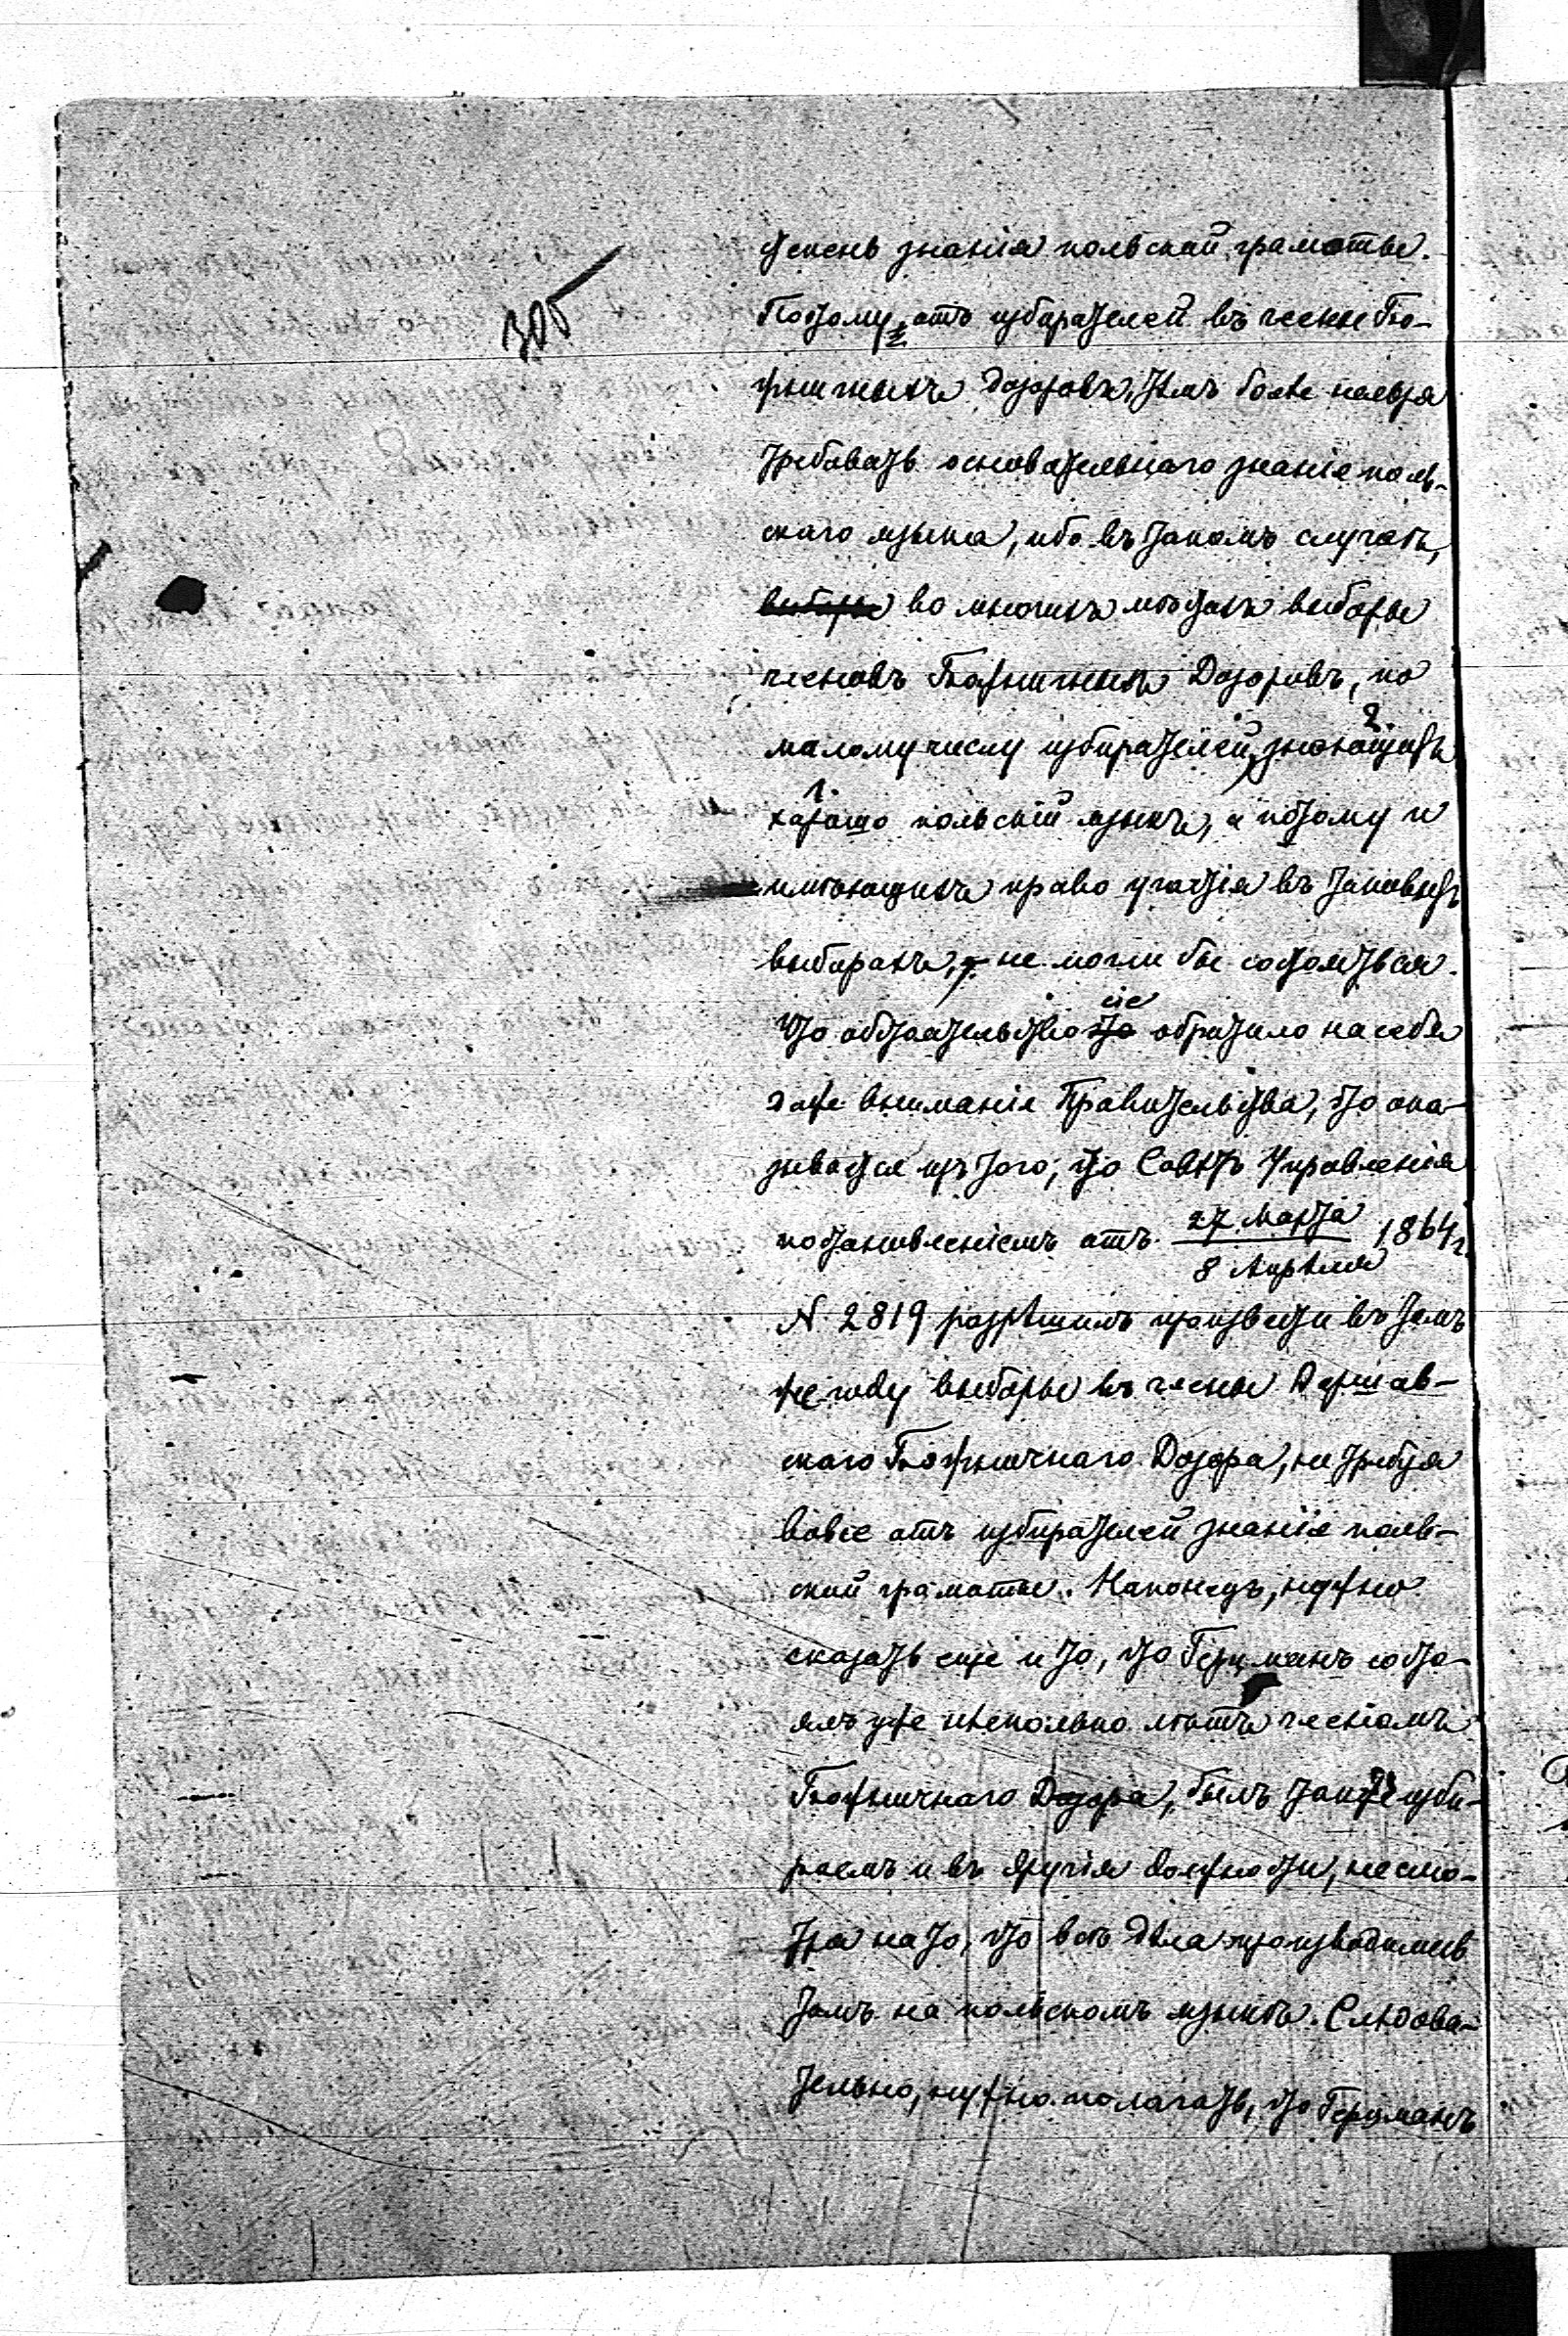 305
степень знанія польской грамоты.
Поэтому, отъ избирателей въ члены Бо-
жничныхъ Дозоровъ, тѣмъ болѣе нельзя
требовать основательнаго знанія поль-
скаго языка, ибо въ такомъ случаѣ,
выборы во многихъ мѣстахъ выборы
членовъ Божничныхъ Дозоровъ, по
малому числу избирателей, знающихъ 2.
1. хорошо польскій языкъ, и потому и
имѣющихъ право участія въ таковыхъ
выборахъ, не могли бы состояться.
Что обстоятельство то сіе обратило на себя
даже вниманіе Правительства, это ока-
зывается изъ того, что Совѣтъ Управленія
постановленіемъ отъ 27 Марта / 8 Апрѣля 1864 г.
N 2819 разрѣшилъ произвести въ томъ
же году выборы въ члены Варшав-
скаго Божничнаго Дозора, не требуя
вовсе отъ избирателей знанія поль-
ской грамоты. Наконецъ, нужно
сказать еще и то, что Герцманъ состо-
ялъ уже нѣсколько лѣтъ членомъ
Божничнаго Дозора, былъ также изби-
раемъ и въ другія должности, несмо-
тря на то, что всѣ дѣла производились
тамъ на польскомъ языкѣ. Слѣдова-
тельно, нужно полагать, что Герцманъ